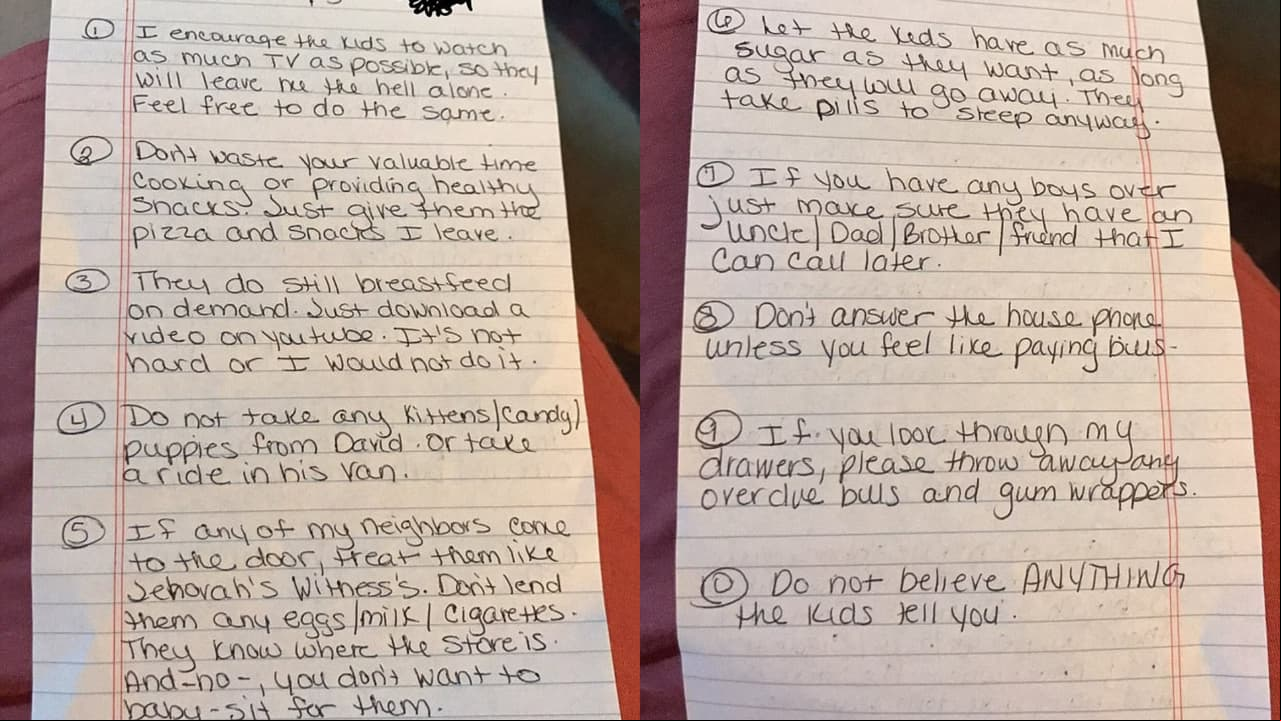 ① I encourage the kids to watch
as much TV as possible, so they
will leave me the hell alone.
Feel free to do the same.
② Don't waste your valuable time
cooking or providing healthy
snacks. Just give them the
pizza and snacks I leave.
③ They do still breastfeed
on demand. Just download a
video on youtube. It's not
hard or I would not do it.
④ Do not take any kittens/candy/
puppies from David. Or take
a ride in his van.
⑤ If any of my neighbors come
to the door, treat them like
Jehovah's Witness's. Don't lend
them any eggs/milk/cigarettes.
They know where the store is.
And-no-, you don't want to
baby-sit for them.
⑥ Let the kids have as much
sugar as they want, as long
as they will go away. They
take pills to sleep anyway.
⑦ If you have any boys over
just make sure they have an
uncle/Dad/Brother/friend that I
can call later.
⑧ Don't answer the house phone
unless you feel like paying bills.
⑨ If you look through my
drawers, please throw away any
overdue bills and gum wrappers.
⑩ Do not believe ANYTHING
the kids tell you.